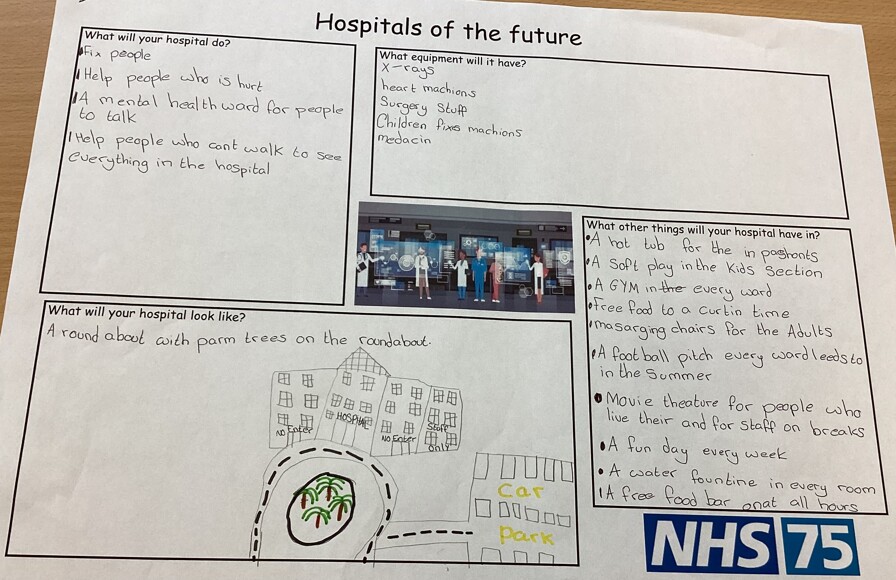 Hospitals of the future
What will your hospital do?
Fix people
Help people who is hurt
A mental health ward for people
to talk
Help people who cant walk to see
everything in the hospital
What equipment will it have?
X-rays
heart machions
Surgery Stuff
Children fixes machions
medacin
What other things will your hospital have in?
A hot tub for the in pashonts
A Soft play in the Kids Section
A GYM in the every ward
Free food to a curtin time
masarging chairs for the Adults
A football pitch every ward leeds to
in the Summer
Movie theature for people who
live their and for staff on breaks
A fun day every week
A water fountine in every room
A free food bar at all hours
What will your hospital look like?
A round about with parm trees on the roundabout.
HOSPITAL
NO Enter
NO Enter
Staff
only
Car
Park
NHS 75